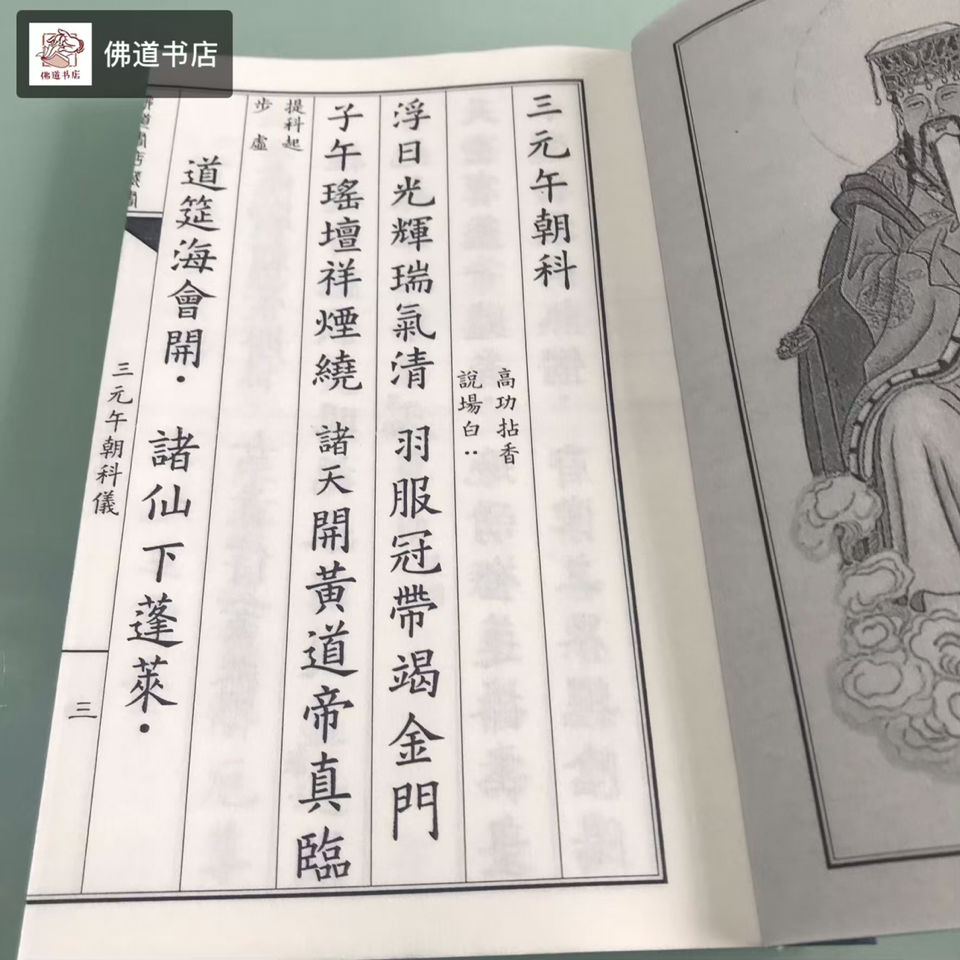 佛道书店
佛道书店
三元午朝科
高功拈香
說場白：
浮日光輝瑞氣清 羽服冠帶竭金門
子午瑤壇祥煙繞 諸天開黃道帝真臨
提科起
步虛
道筵海會開．諸仙下蓬萊．
三元午朝科儀
三